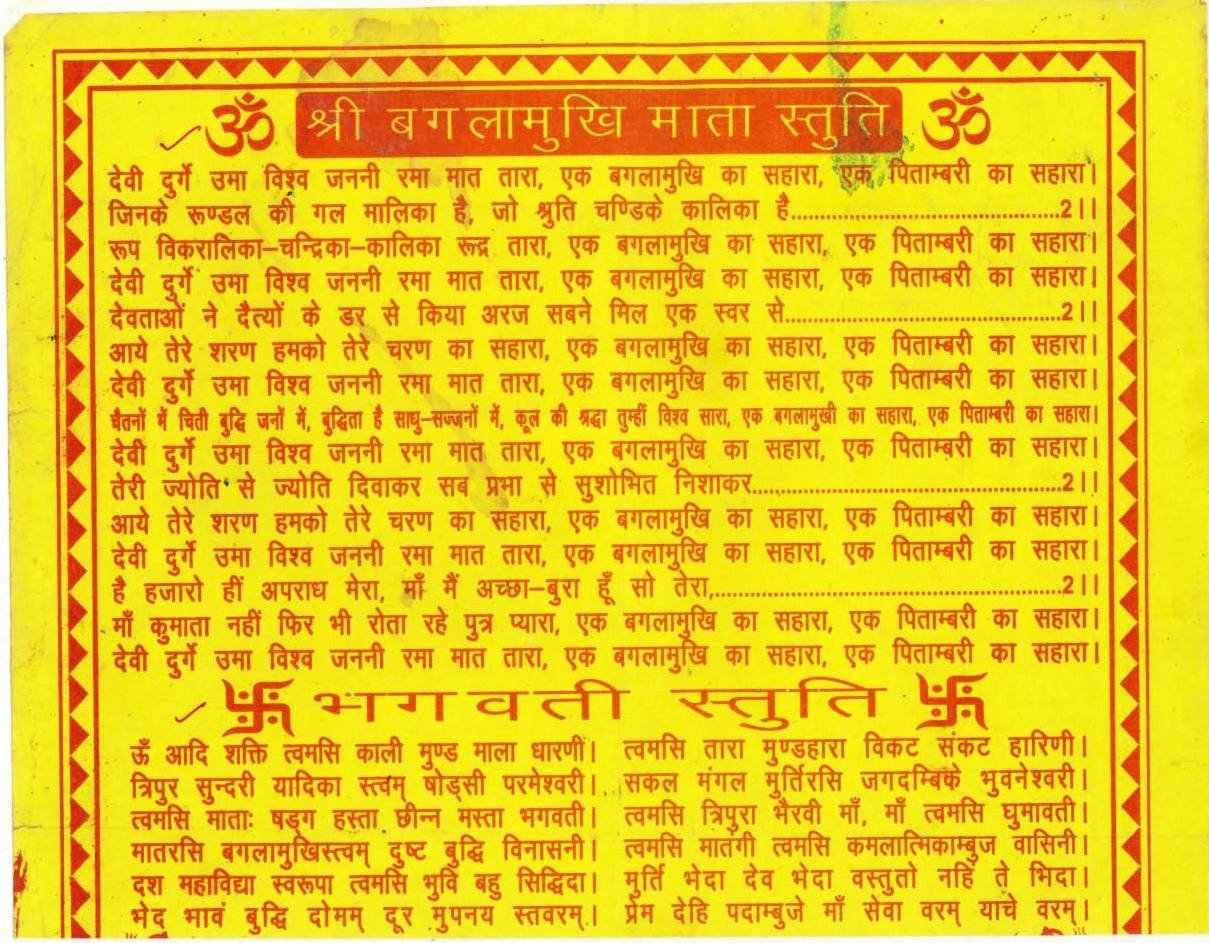 ॐ श्री बगलामुखि माता स्तुति ॐ
देवी दुर्गे उमा विश्व जननी रमा मात तारा, एक बगलामुखि का सहारा, एक पिताम्बरी का सहारा।
जिनके रूण्डल की गल मालिका है, जो श्रुति चण्डिके कालिका है..........................................2।।
रूप विकरालिका–चन्द्रिका–कालिका रूद्र तारा, एक बगलामुखि का सहारा, एक पिताम्बरी का सहारा।
देवी दुर्गे उमा विश्व जननी रमा मात तारा, एक बगलामुखि का सहारा, एक पिताम्बरी का सहारा।
देवताओं ने दैत्यों के डर से किया अरज सबने मिल एक स्वर से..........................................2।।
आये तेरे शरण हमको तेरे चरण का सहारा, एक बगलामुखि का सहारा, एक पिताम्बरी का सहारा।
देवी दुर्गे उमा विश्व जननी रमा मात तारा, एक बगलामुखि का सहारा, एक पिताम्बरी का सहारा।
चैतनों में चिती बुद्धि जनों में, बुद्धिता है साधु–सज्जनों में, कूल की श्रद्धा तुम्हीं विश्व सारा, एक बगलामुखी का सहारा, एक पिताम्बरी का सहारा।
देवी दुर्गे उमा विश्व जननी रमा मात तारा, एक बगलामुखि का सहारा, एक पिताम्बरी का सहारा।
तेरी ज्योति से ज्योति दिवाकर सब प्रभा से सुशोभित निशाकर................................................2।।
आये तेरे शरण हमको तेरे चरण का सहारा, एक बगलामुखि का सहारा, एक पिताम्बरी का सहारा।
देवी दुर्गे उमा विश्व जननी रमा मात तारा, एक बगलामुखि का सहारा, एक पिताम्बरी का सहारा।
है हजारो हीं अपराध मेरा, माँ मैं अच्छा–बुरा हूँ सो तेरा,......................................................2।।
माँ कुमाता नहीं फिर भी रोता रहे पुत्र प्यारा, एक बगलामुखि का सहारा, एक पिताम्बरी का सहारा।
देवी दुर्गे उमा विश्व जननी रमा मात तारा, एक बगलामुखि का सहारा, एक पिताम्बरी का सहारा।
卐 भगवती स्तुति 卐
ऊँ आदि शक्ति त्वमसि काली मुण्ड माला धारणीं। त्वमसि तारा मुण्डहारा विकट संकट हारिणी।
त्रिपुर सुन्दरी यादिका स्त्वम् षोड्सी परमेश्वरी। सकल मंगल मुर्तिरसि जगदम्बिके भुवनेश्वरी।
त्वमसि माताः षड्ग हस्ता छीन्न मस्ता भगवती। त्वमसि त्रिपुरा भैरवी माँ, माँ त्वमसि घुमावती।
मातरसि बगलामुखिस्त्वम् दुष्ट बुद्धि विनासनी। त्वमसि मातगी त्वमसि कमलात्मिकाम्बुज वासिनी।
दश महाविद्या स्वरूपा त्वमसि भुवि बहु सिद्धिदा। मुर्ति भेदा देव भेदा वस्तुतो नहि ते भिदा।
भेद भावं बुद्धि दोमम् दूर मुपनय स्तवरम्। प्रेम देहि पदाम्बुजे माँ सेवा वरम् याचे वरम्।